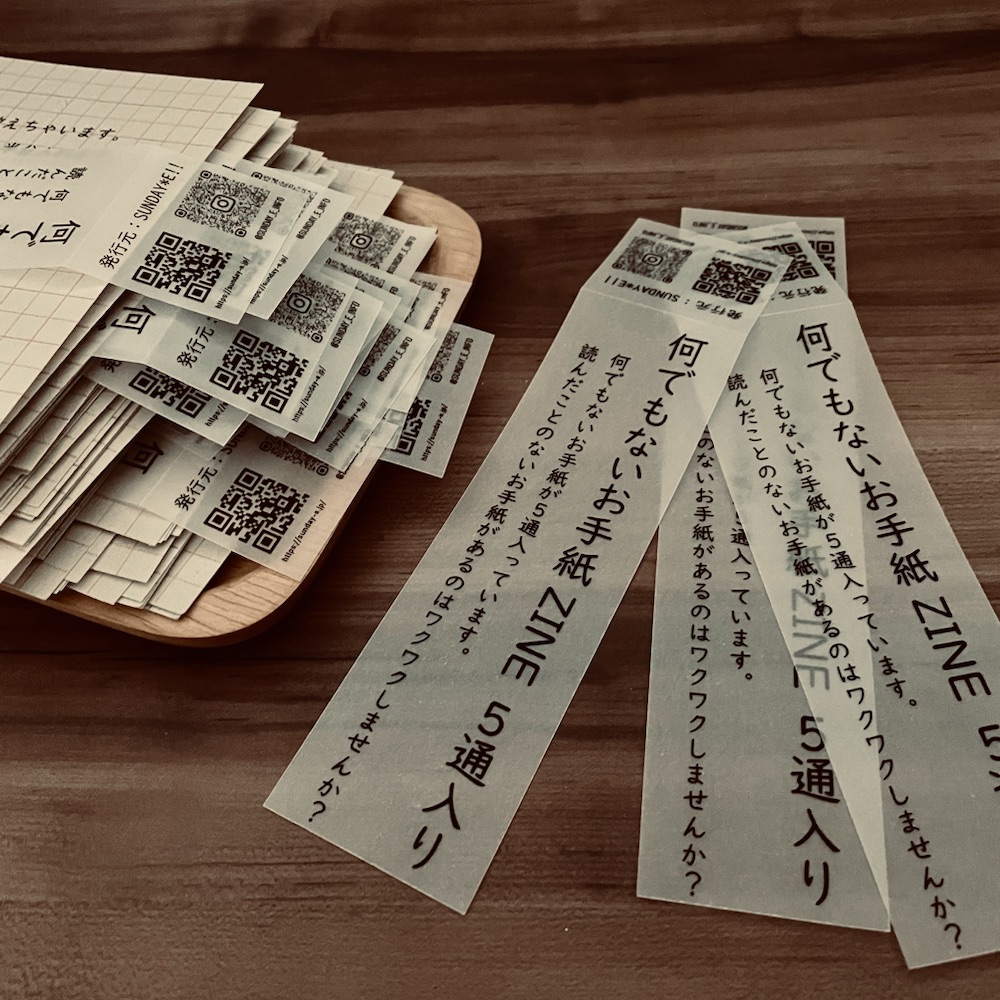 えちゃいます。
読んだこと
何でもな
何でも
発行元：SUNDAY*E!!
@SUNDAY_E_INFO
https://sunday-e.jp/
何
発行元：
@SUNDAY_E_INFO
https://sunday-e.jp/
@SUNDAY_E_INFO
@SUNDAY_E_INFO
https://sunday-e.jp/
何
発行元：
https://sunday-e.jp/
発行元：SUNDAY*E!!
何でもないお手紙 ZINE 5通入り
何でもないお手紙が5通入っています。
読んだことのないお手紙があるのはワクワクしませんか？
ZINE 5通入り
5通入っています。
のないお手紙があるのはワクワクしませんか？
発行元：
何でもないお手紙 ZINE 5
何でもないお手紙が5通入っています。
読んだことのないお手紙があるのはワクワクしませんか？